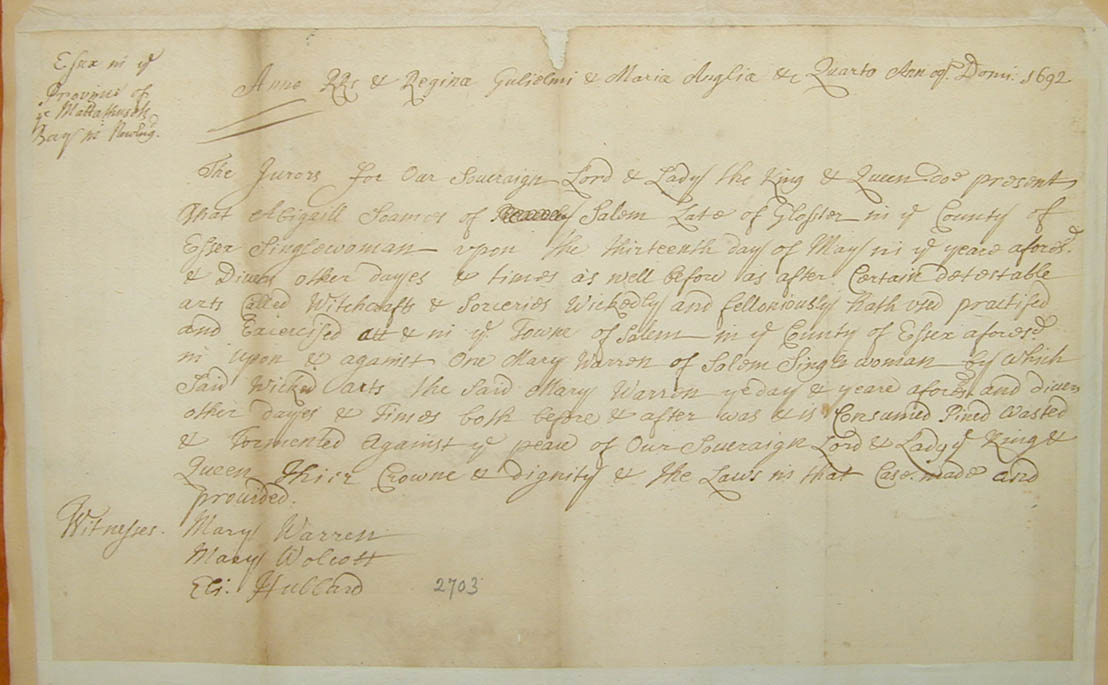 Essex in ye
Province of
ye Mattathusets
Bay in NewEng.
Anno RRs & Reginæ Gulielmi & Mariæ Angliæ &c Quarto Annoqe Domi: 1692
The Jurors for Our Soveraign Lord & Lady the King & Queen doe present
That Abigaill Soames of Salem Late of Gloster in ye County of
Essex Singlewoman upon the thirteenth day of May in ye yeare aforesd.
& Divers other dayes & times as well before as after. Certain detestable
arts Called Witchcrafts & Sorceries Wickedly and felloniously hath used practised
and Exercised att & in ye Towne of Salem in ye County of Essex aforesd.
in upon & against One Mary Warren of Salem Single woman by which
Said Wicked arts the Said Mary Warren ye day & yeare aforesd and divers
other dayes & times both before & after was & is Consumed Pined Wasted
& Tormented Against ye peace of Our Soveraign Lord & Lady ye King &
Queen Thier Crowne & dignity & the Laws in that Case. made and
provided.
Witnesses. Mary Warren
Mary Wolcott
Eli. Hubbard 2703